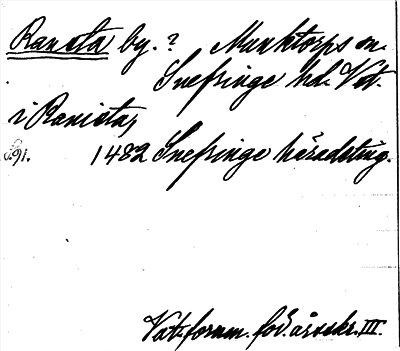 Ransta by. ? Munktorps sn.
Snefringe hd. Vst.
i Ranista,
S. 91. 1482 Snefringe häradsting.
Vstm. fornm. för. årsskr. III.